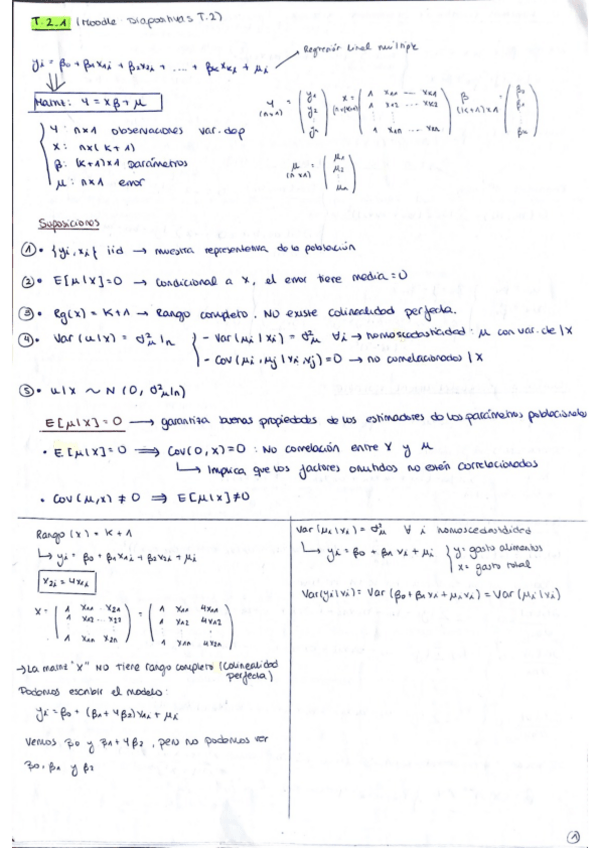 T.2.1 (Moodle Diapositivas T.2)
yi = β0 + β1x1i + β2x2i + .... + βkxki + μi → Regresión lineal múltiple
Matriz: Y = Xβ + μ
Y (n×1) = (y1 y2 ⋮ yn) X (n×(k+1)) = (1 x11 ... xk1 1 x12 ... xk2 ⋮ 1 x1n ... xkn) β (k+1)×1 = (β0 β1 ⋮ βk)
Y: n×1 observaciones var. dep
X: n×(k+1)
β: (k+1)×1 parámetros
μ: n×1 error
μ (n×1) = (μ1 μ2 ⋮ μn)
Suposiciones
① • {yi, xi} iid → muestra representativa de la población
② • E[μ|x]=0 → condicional a x, el error tiene media=0
③ • Rg(x) = k+1 → Rango completo. NO existe colinealidad perfecta.
④ • Var(u|x) = σ²μ In
- Var(μi|xi) = σ²μ ∀i → homoscedasticidad: μ con var. cte |x
- Cov(μi, μj|xi, xj) = 0 → no correlacionados |x
⑤ • u|x ~ N(0, σ²μIn)
E[μ|x] = 0 → garantiza buenas propiedades de los estimadores de los parámetros poblacionales
• E[μ|x]=0 ⟹ Cov(0,x)=0 : No correlación entre x y μ
↳ Implica que los factores omitidos no estén correlacionados
• Cov(μ,x) ≠ 0 ⟹ E[μ|x]≠0
Rango (x) = k+1
↳ yi = β0 + β1x1i + β2x2i + μi
x2i = 4x1i
X = (1 x11 ... x21 1 x12 ... x22 ⋮ 1 x1n x2n) = (1 x11 4x11 1 x12 4x12 ⋮ 1 x1n 4x2n)
→ La matriz "X" NO tiene rango completo (colinealidad perfecta)
Podemos escribir el modelo:
yi = β0 + (β1 + 4β2)x1i + μi
Vemos β0 y β1 + 4β2, pero no podemos ver
β0, β1 y β2
Var(μi|xi) = σ²μ ∀ i homoscedasticidad
↳ yi = β0 + β1 xi + μi { y= gasto alimentos
x= gasto total
Var(yi|xi) = Var(β0+β1x1+μ1x1) = Var(μi|xi)
1